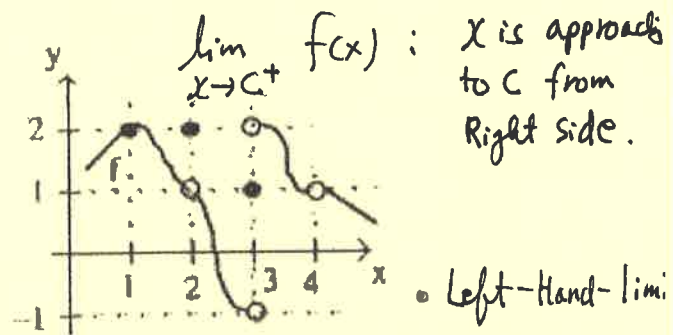 lim f(x) : x is approachs
x→c⁺ to c from
Right side.
y
2
1
f
1 2 3 4 x
-1
• Left-Hand-limi